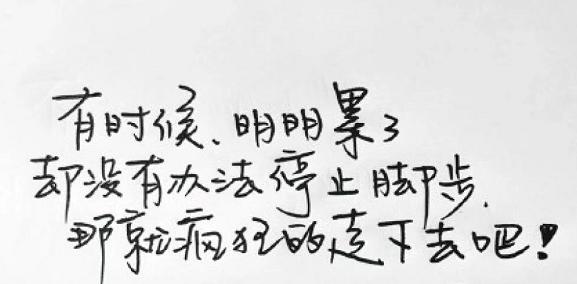 有时候、明明累了
却没有办法停止脚步.
那就疯狂的走下去吧！